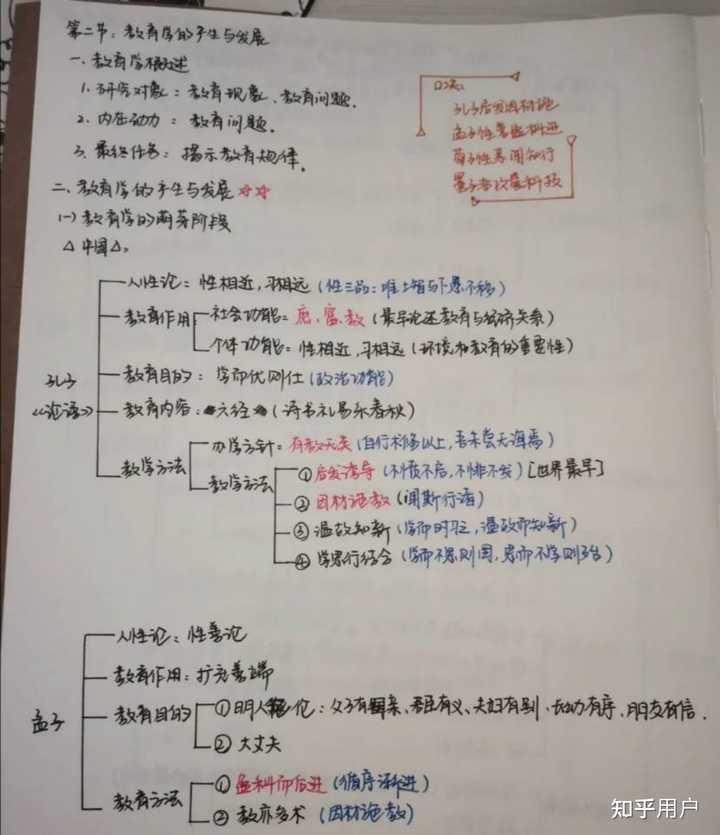 第二节：教育学的产生与发展
一、教育学概述
1. 研究对象：教育现象、教育问题。
2. 内在动力：教育问题。
3. 最终任务：揭示教育规律。
口诀：
孔子启发因材施
孟子性善盈科进
荀子性恶闻知行
墨子者攻墨科技
二、教育学的产生与发展 ☆☆
(一) 教育学的萌芽阶段
△ 中国△。
孔子《论语》
人性论：性相近，习相远（性三品：唯上智与下愚不移）
教育作用
社会功能：庶、富、教（最早论述教育与经济关系）
个体功能：性相近，习相远（环境和教育的重要性）
教育目的：学而优则仕（政治功能）
教育内容：六经（诗书礼易乐春秋）
教学方法
办学方针：有教无类（自行束脩以上，吾未尝无诲焉）
教学方法
① 启发诱导（不愤不启，不悱不发）[世界最早]
② 因材施教（闻斯行诸）
③ 温故知新（学而时习之，温故而知新）
④ 学思行结合（学而不思则罔，思而不学则殆）
孟子
人性论：性善论
教育作用：扩充善端
教育目的
① 明人伦：父子有亲、君臣有义、夫妇有别、长幼有序、朋友有信.
② 大丈夫
教育方法
① 盈科而后进（循序渐进）
② 教亦多术（因材施教）
知乎用户